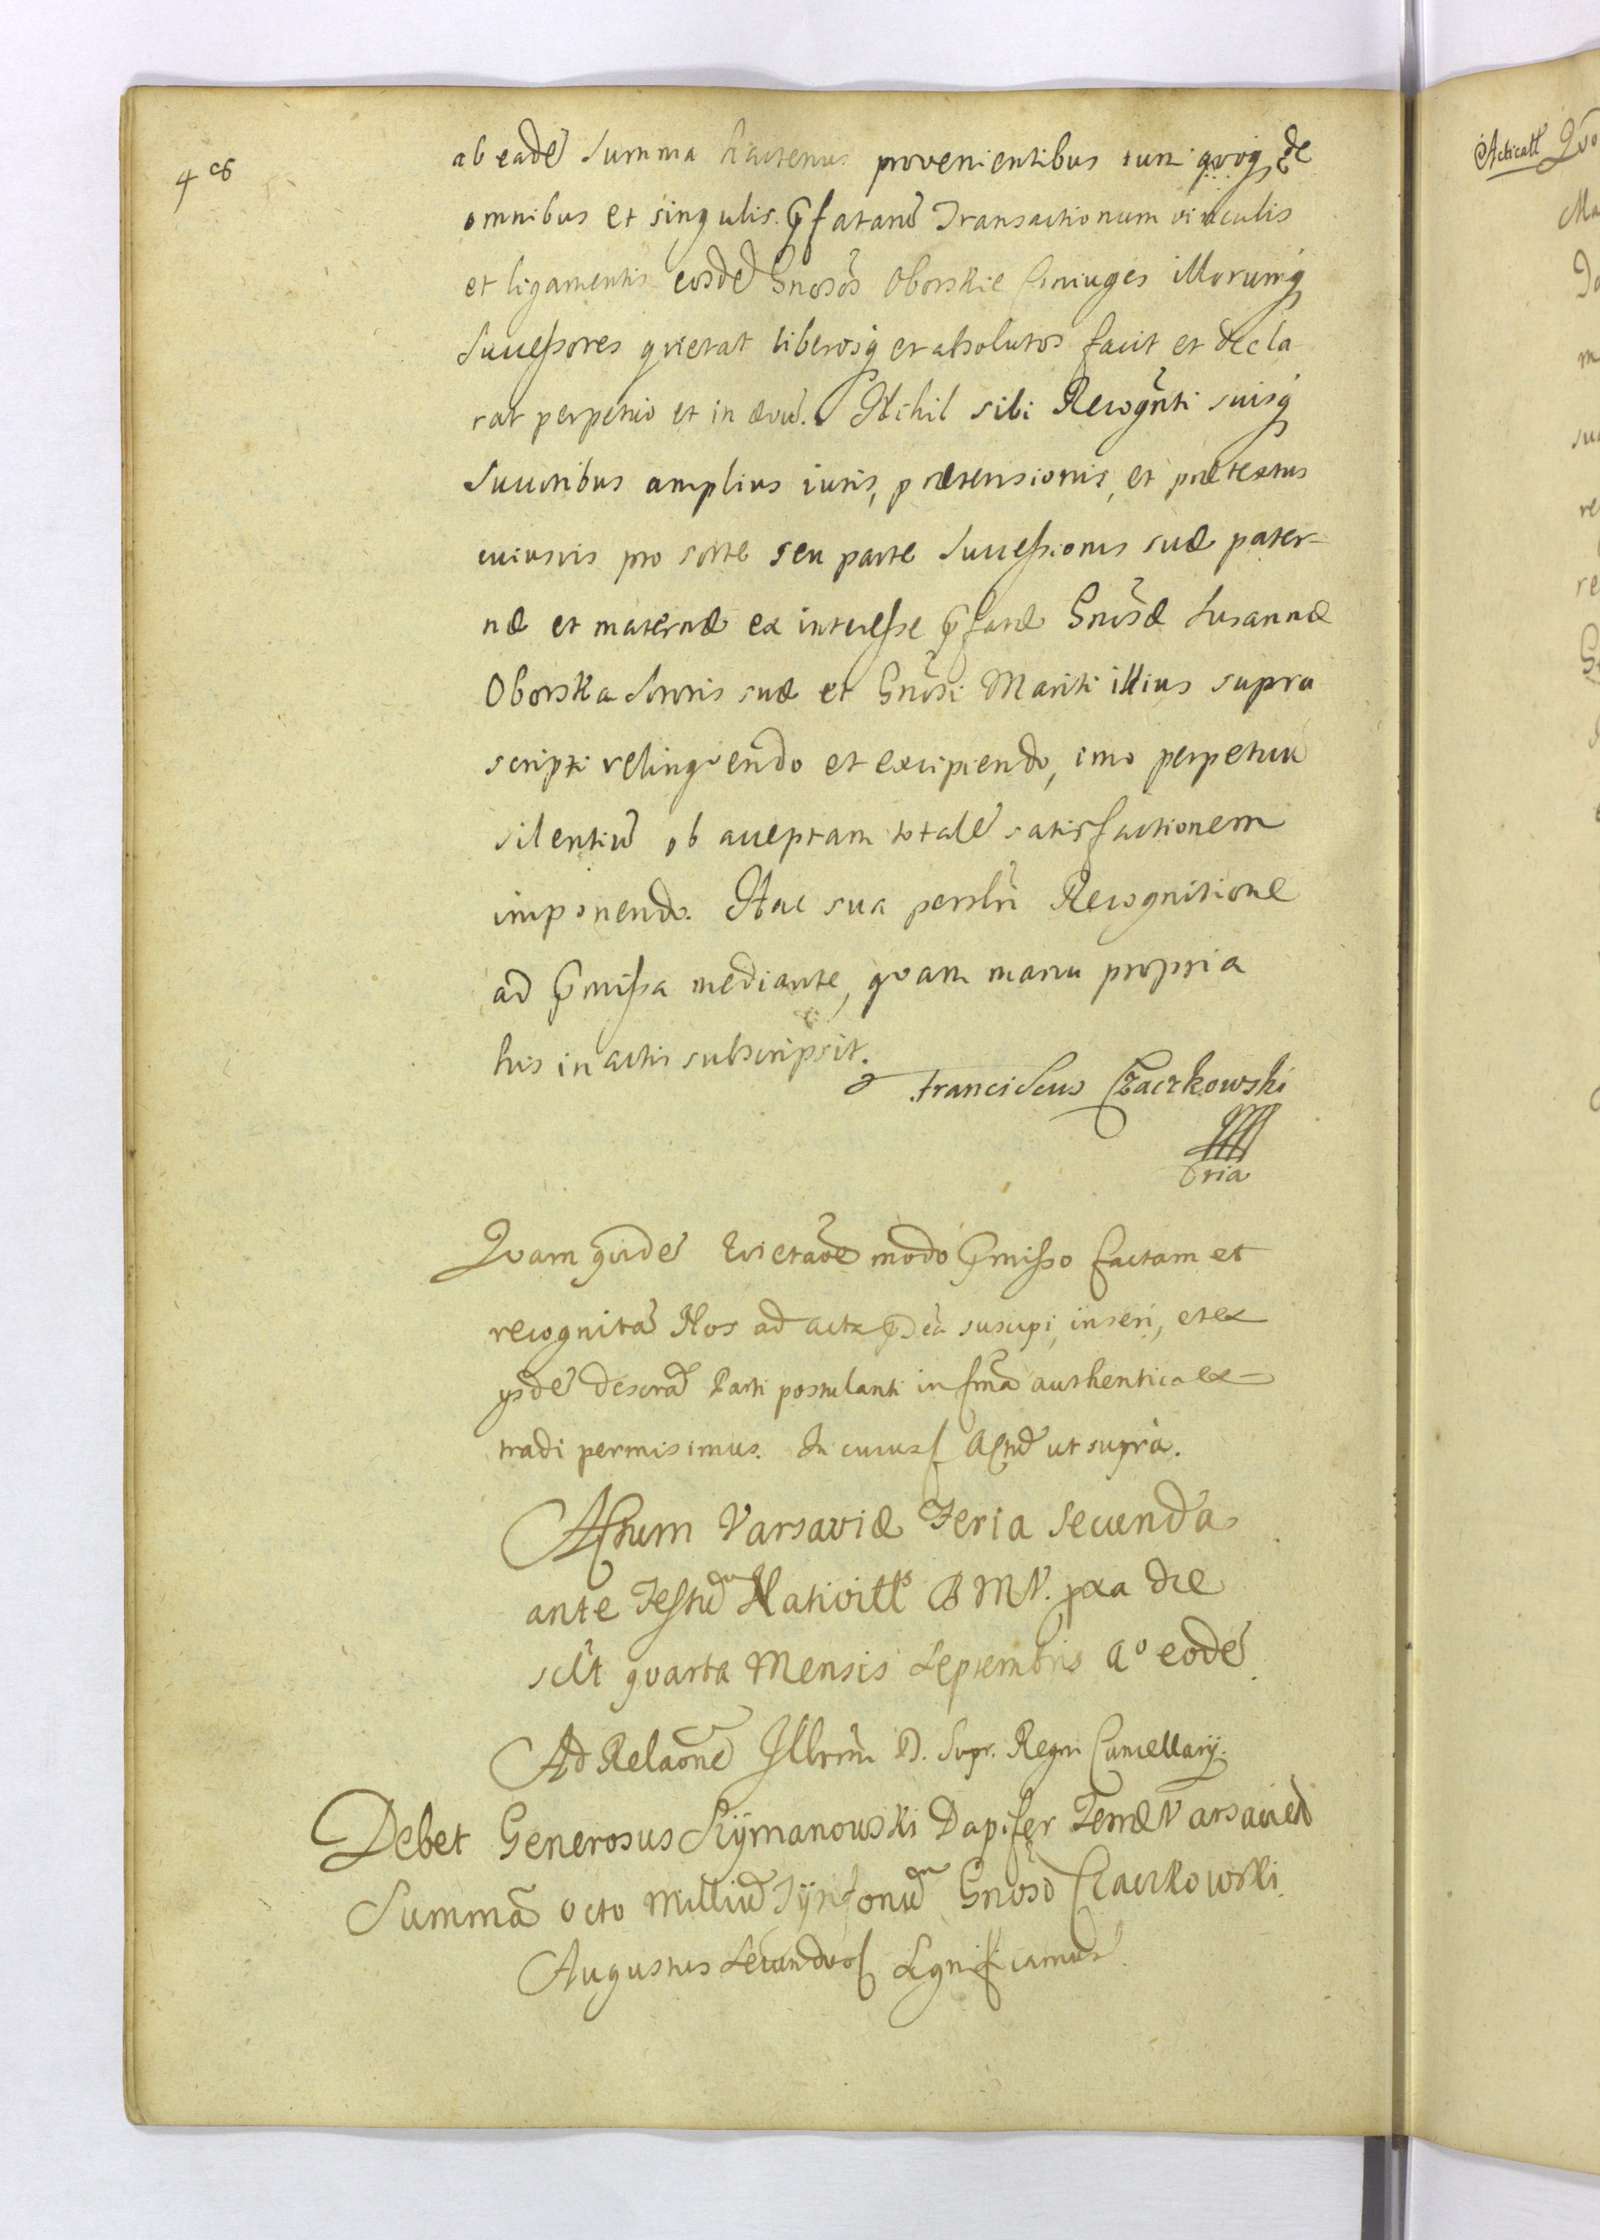 48
ab eadē Summa hactenus provenientibus tum quoq̨ de
omnibus et singulis p̃fatarū Transactionum vinculis
et ligamentis eosdē Gnosōs Oborskie Coniuges illorumq̨
Successores quietat liberosq̨ et absolutos facit et decla
rat perpetuo et in ævū. Nihil sibi Recogñti suisq̨
Succribus amplius iuris, prætensionis, et prætextus
cuiusvis pro sorte seu parte Successionis suæ pater=
næ et maternæ ex interesse p̃fatæ Gnosæ Susannæ
Oborska Sororis suæ et Gnōsi Mariti illius supra
scripti relinquendo et excipiendo, imo perpetuū
silentiū ob acceptam totalē satisfactionem
imponendo. Hac sua persōlri Recognitione
ad p̃missa mediante, quam manu propria
his in actis subscripsit.
Franciscus Czaczkowski
Quam quidē Quietaōe modo p̃misso factam et
recognitā Nos ad acta p̃ñtia suscipi, inseri, et ex
ysdē descrā Parti postulanti in fm̃a authentica ex=
tradi permisimus. In cuius Actū ut supra.
Actum Varsaviæ Feria Secunda
ante Festū Nativitts B M V. pxa die
sclt quarta Mensis Septembris Aº eodē
Ad Relaōnē Illrm̄i D. Supr. Regni Cancellarÿ.
Debet Generosus Szÿmanouski Dapifer Terræ Varsavien̄
Summā octo Milliū Tÿnfonū Gnōso Czaczkowski
Augustus Secundus Significamus
Acticatt Quo